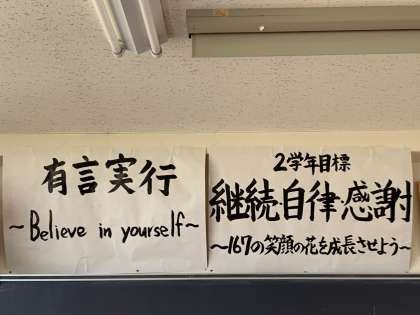 有言実行
~Believe in yourself~
2学年目標
継続・自律・感謝
~167の笑顔の花を成長させよう~